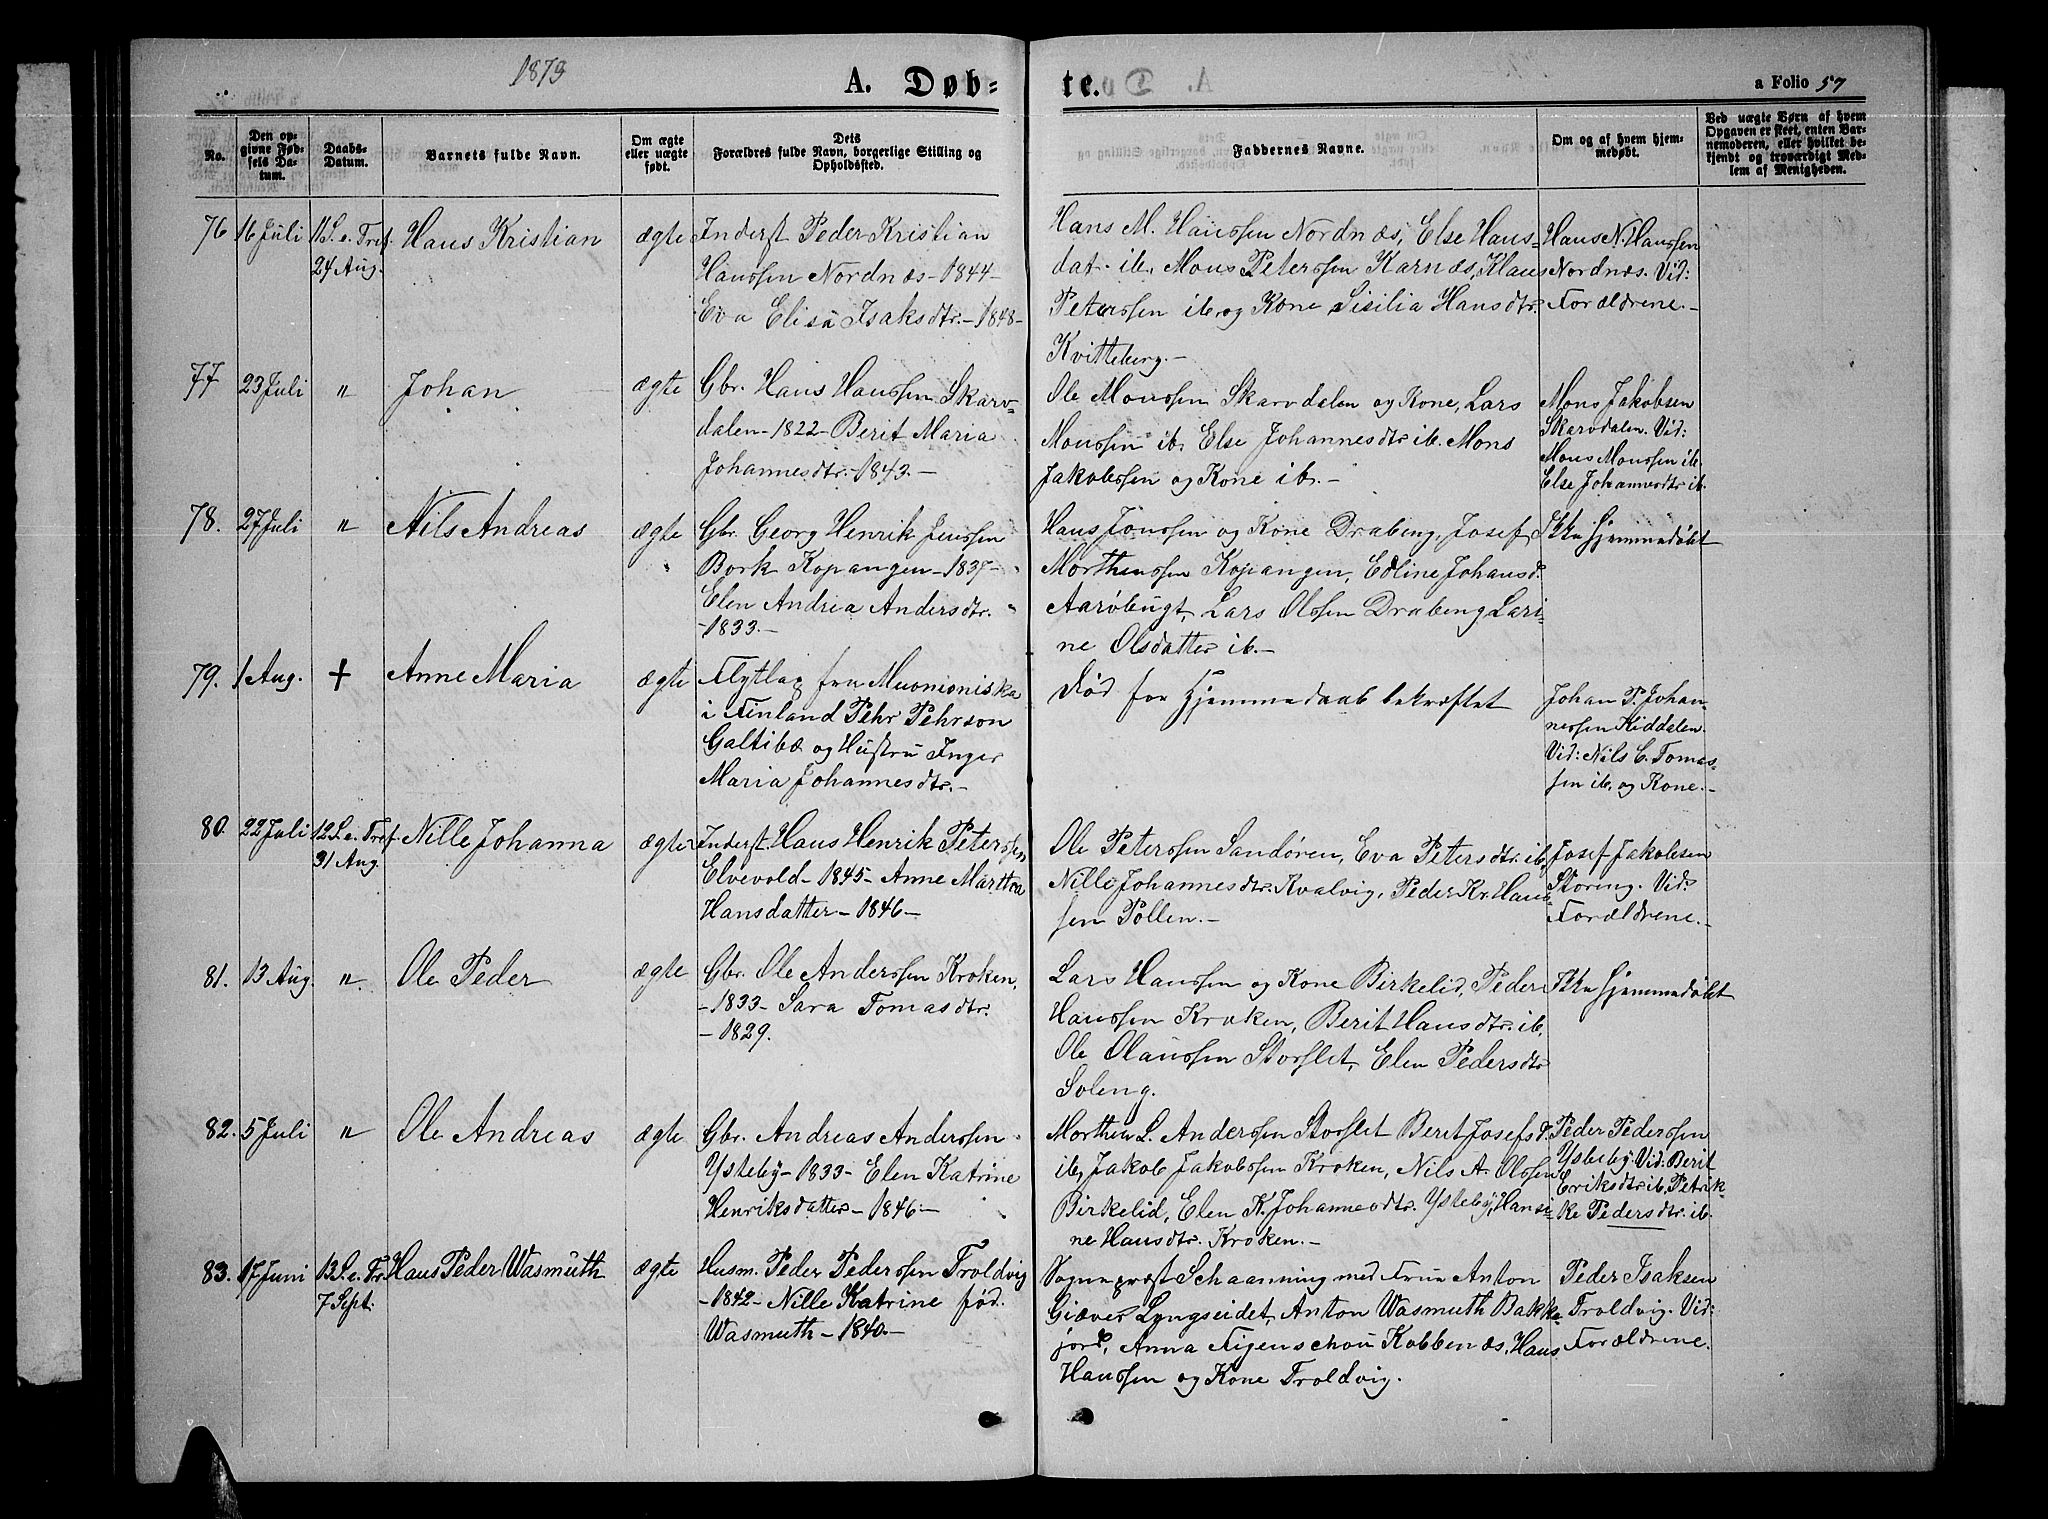 1873
A. Døb-
te.
a Folio 57
No.
Den op-
givne Fød-
sels Da-
tum.
Daabs-
Datum.
Barnets fulde Navn.
Om ægte
eller uægte
født.
Dets
Forældres fulde Navn, borgerlige Stilling og
Opholdssted.
Faddernes Navne.
Om og af hvem hjem-
medøbt.
Ved uægte Børn af hvem
Opgaven er skeet, enten Bar-
nemoderen, eller hvilket be-
kjendt og troværdigt Med-
lem af Menigheden.
76
16 Juli
11 S. e. Tref.
24 Aug.
Hans Kristian
ægte
Inderst Peder Kristian
Hanssen Nordnæs - 1844 -
Eva Elisa Isaksdtr. - 1848 -
Hans M. Hanssen Nordnæs, Else Hans-
dat. ib., Mons Peterssen Karnæs, Klaus
Peterssen ib. og Kone Sisilia Hansdtr.
Kvitteberg. -
Hans N. Hanssen
Nordnæs. Vid:
Forældrene. -
77
23 Juli
"
Johan
ægte
Gbr. Hans Hanssen Skarv-
dalen - 1822 - Berit Maria
Johannesdtr. - 1843. -
Ole Monssen Skarvdalen og Kone, Lars
Monssen ib., Else Johannesdtr ib. Mons
Jakobssen og Kone ib. -
Mons Jakobsen
Skarvdalen. Vid:
Mons Monssen ib.
Else Johannesdtr ib.
78.
27 Juli
"
Nils Andreas
ægte
Gbr. Georg Henrik Jenssen
Bork Kopangen - 1837 -
Elen Andrea Andersdtr.
- 1833. -
Hans Jonssen og Kone Drabeng, Josef
Morthenssen Kopangen, Edline Johansd.
Aarøbugt, Lars Olssen Drabeng Lari-
ne Olsdatter ib. -
Ikke hjemmedøbt
79.
1 Aug.
+
Anne Maria
ægte
Flytlap fra Muonioniska
i Finland Pehr Pehrson
Galtibæ og Hustru Inger
Maria Johannesdtr. -
Død før Hjemmedaab bekræftet
Johan P. Johan-
nessen Kiddalen.
Vid: Nils C. Tomas-
sen ib. og Kone. -
80.
22 Juli
12 S. e. Tref.
31 Aug.
Nille Johanna
ægte
Inderst Hans Henrik Peterssen
Elvevold - 1845 - Anne Martha
Hansdatter - 1846 -
Ole Peterssen Sandøren, Eva Petersdtr. ib.
Nille Johannesdtr. Kvalvig, Peder Kr. Hans-
sen Pollen. -
Josef Jakobsen
Storeng. Vid:
Forældrene. -
81.
13 Aug.
"
Ole Peder
ægte
Gbr. Ole Anderssen Kroken.
- 1833 - Sara Tomasdtr.
- 1829.
Lars Hanssen og Kone Birkelid, Peder
Hanssen Kroken, Berit Hansdtr. ib.
Ole Olaussen Storslet, Elen Pedersdtr
Soleng.
Ikke hjemmedøbt
82.
5 Juli
"
Ole Andreas
ægte
Gbr. Andreas Anderssen
Ysteby - 1833 - Elen Katrine
Henriksdatter - 1846 -
Morthen L. Anderssen Storslet Berit Josefsd.
ib, Jakob Jakobssen Kroken, Nils A. Olssen
Birkelid, Elen K. Johannesdtr. Ysteby, Hansi-
ne Hansdtr. Kroken. -
Peder Pederssen
Ysteby. Vid: Berit
Eriksdtr ib, Petrik-
ke Pedersdtr. ib.
83.
17 Juni
13 S. e. Tr.
7 Sept.
Hans Peder Wasmuth
ægte
Husm. Peder Pederssen Troldvig
- 1842 - Nille Katrine fød.
Wasmuth - 1840. -
Sognepræst Schaanning med Frue Anton
Giæver Lyngseidet, Anton Wasmuth Bakke-
jord, Anna Figenschou Kobbenæs, Hans
Hanssen og Kone Troldvig.
Peder Isaksen
Troldvig. Vid:
Forældrene.